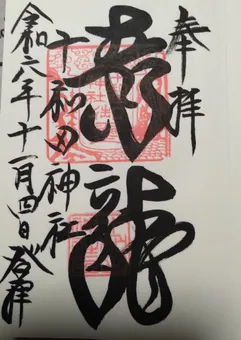 奉拝
青龍
十和田神社
令和六年十一月四日登拝